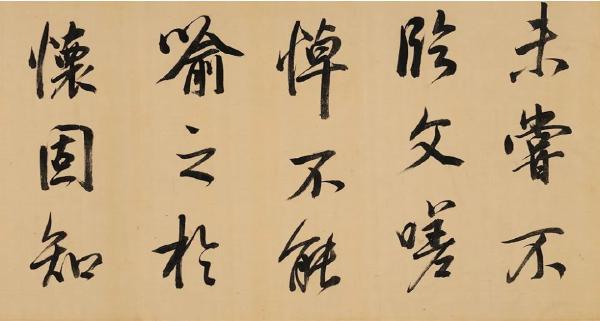 未嘗不
臨文嗟
悼不能
喻之於
懷固知